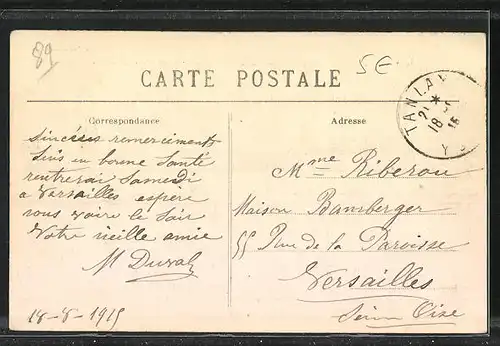 89
5E
CARTE POSTALE
Correspondance
Adresse
TANLAY
21
18
15
Y
sincères remerciements
suis en bonne santé
rentrerai Samedi
a Versailles espere
vous voire le soir
Votre vieille amie
M Duval
18-8-1915
Mme Riberou
Maison Bamberger
55 Rue de la Paroisse
Versailles
Seine Oise